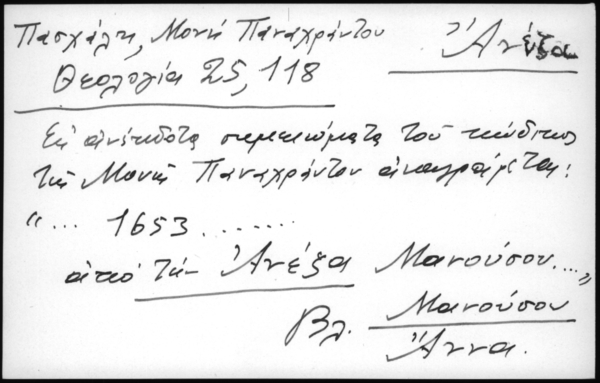 Πασχάλη, Μονή Παναχράντου
Ἀνέζα
Θεολογία 25, 118
Εἰς ἀνέκδοτα σημειώματα τοῦ κώδικος
τῆς Μονῆς Παναχράντου ἀναγράφεται:
“... 1653 .......
ἀπό τήν Ἀνέζα Μανούσου....”
Βλ. Μανούσου
Ἄννα.